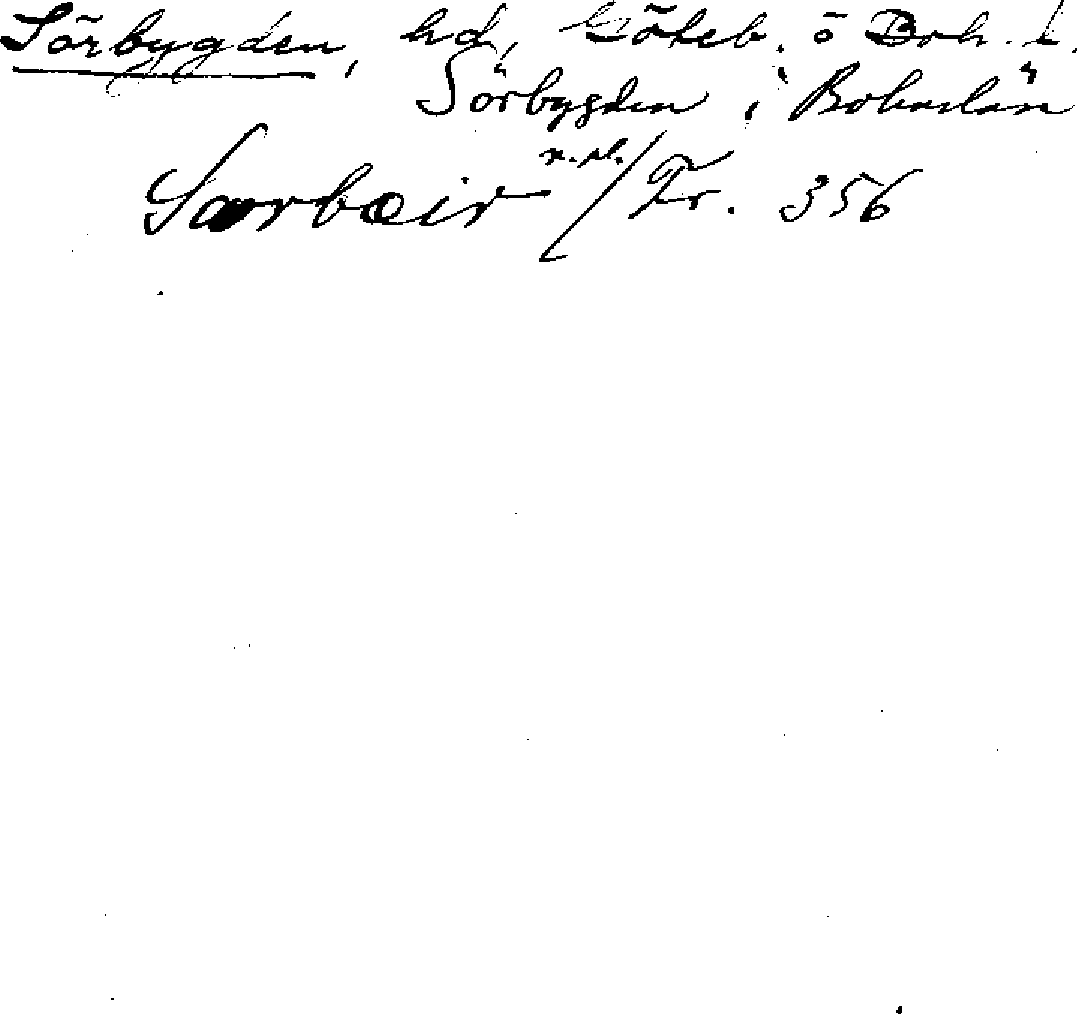 Sörbygden, hd, Göteb. o Boh. l.
Sörbygden i Bohuslän
Sorbæir n. pl. / Fr. 356